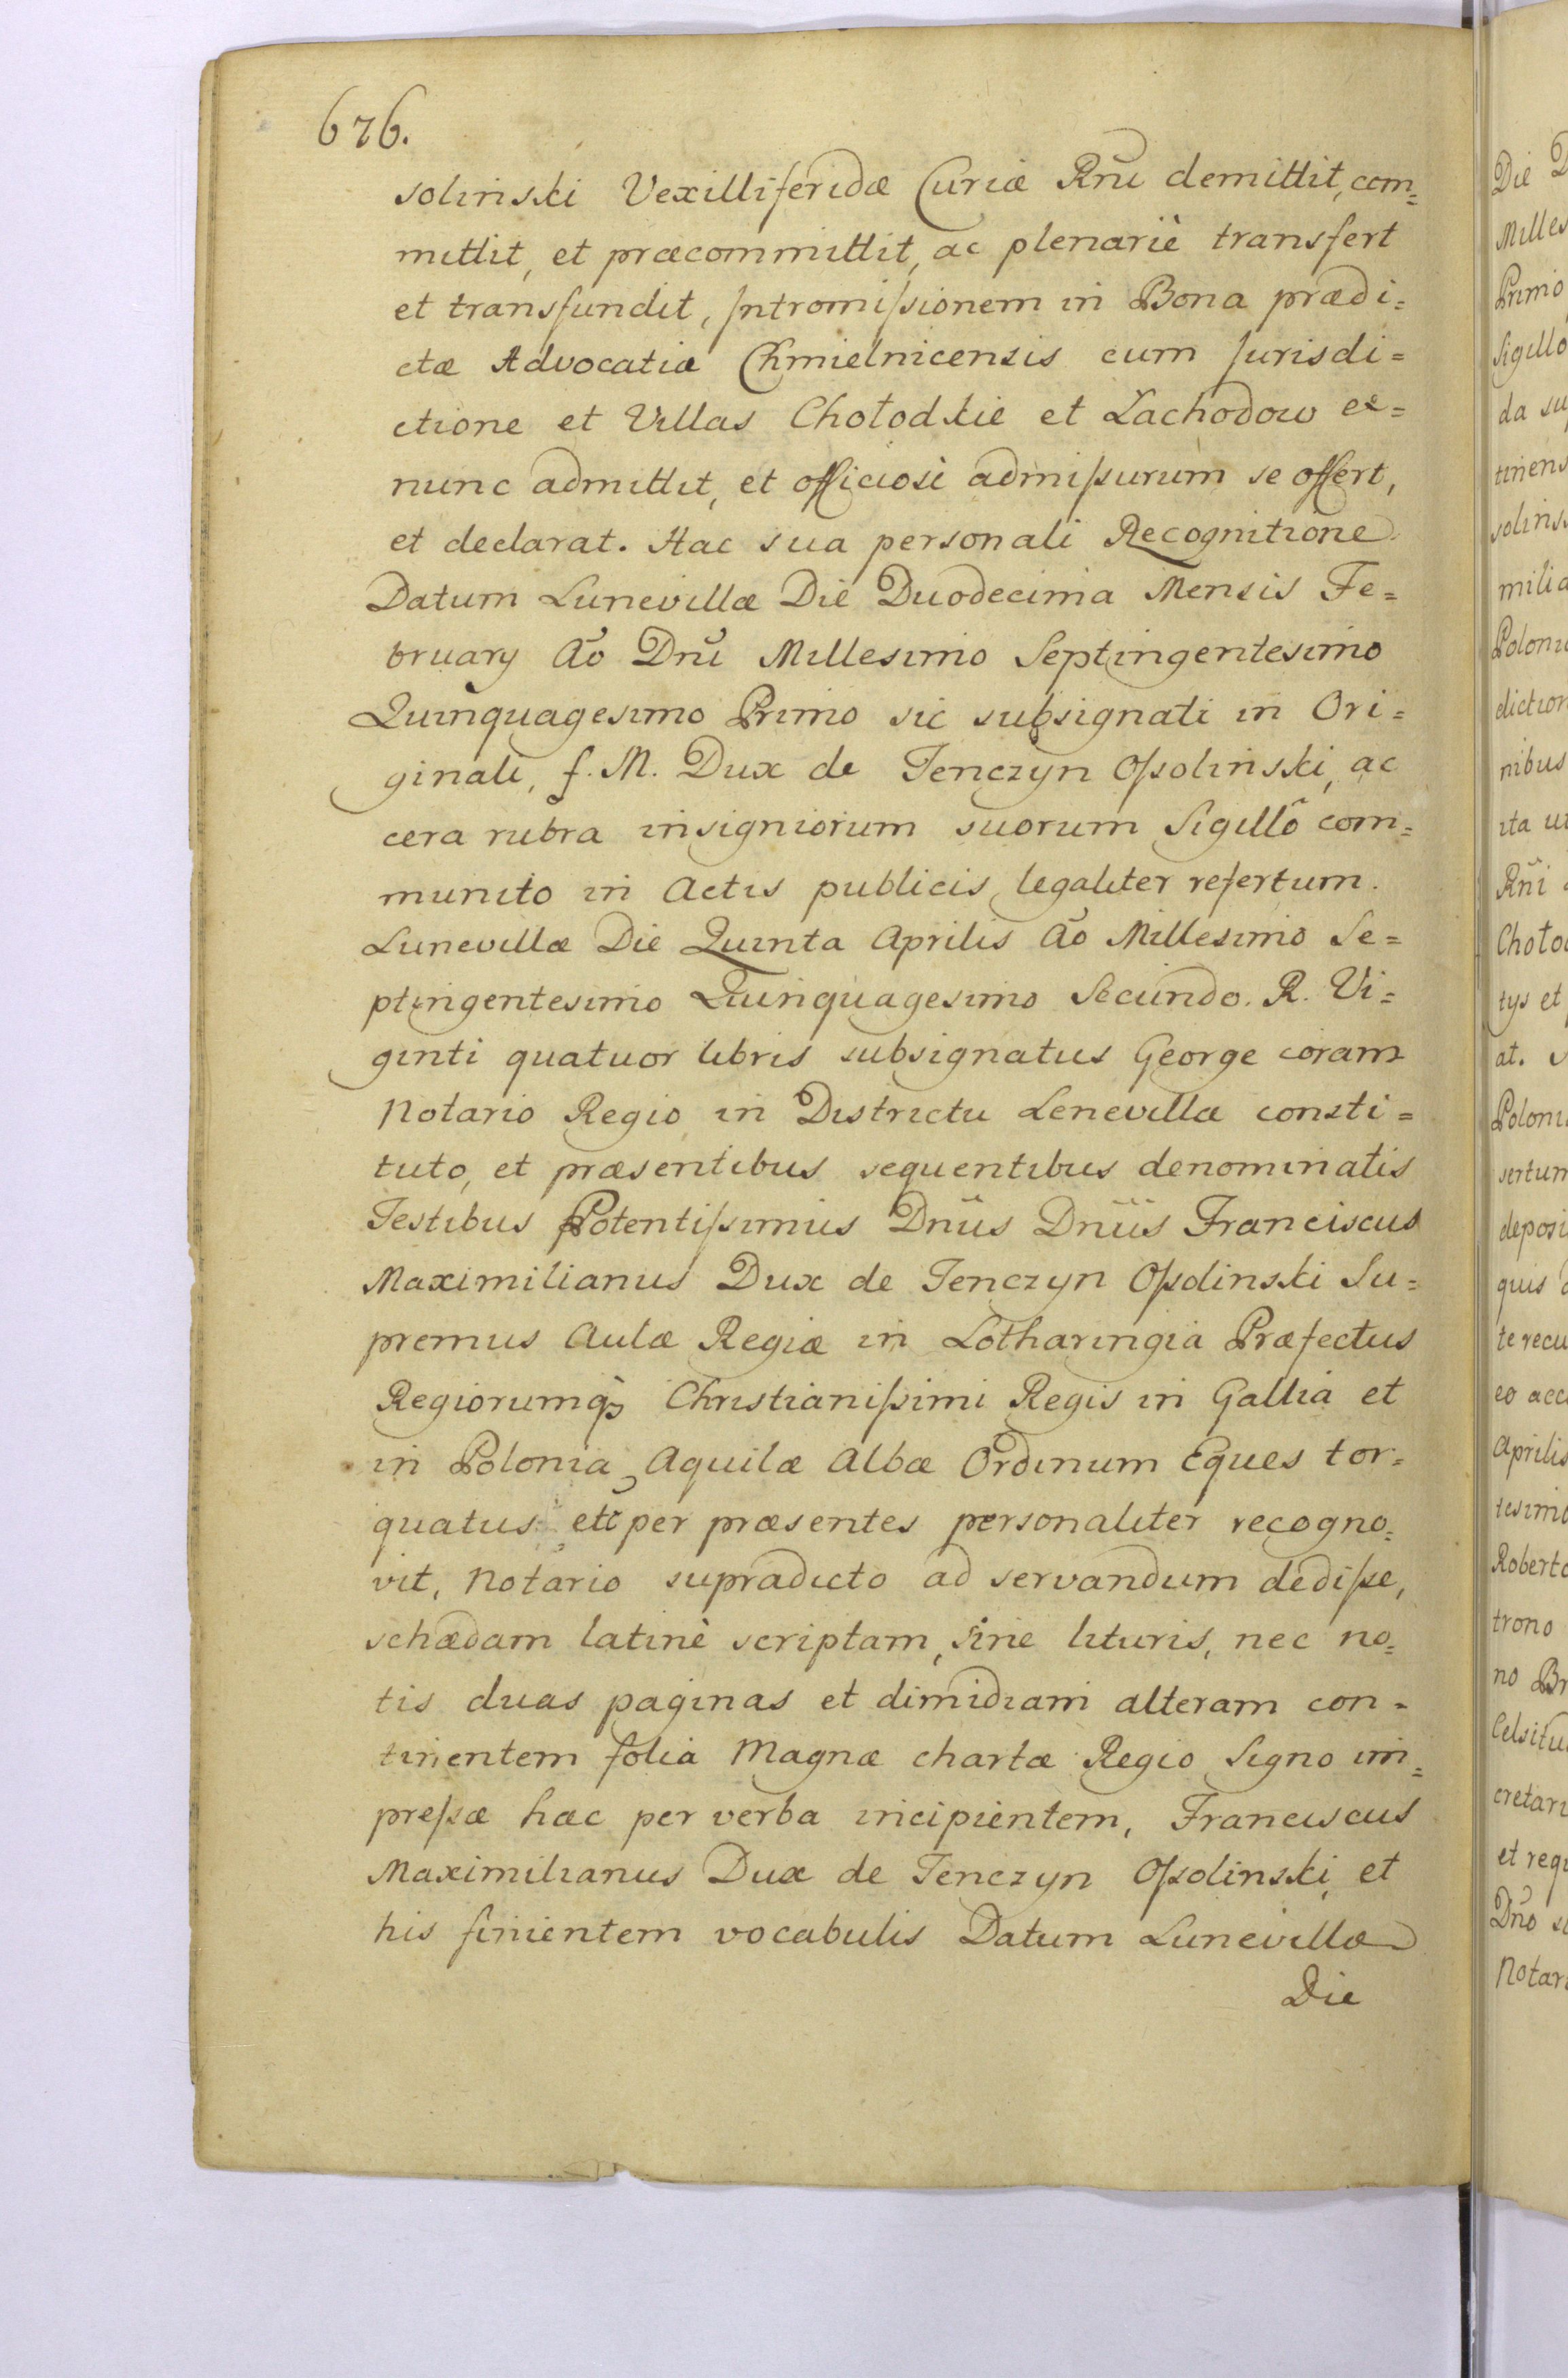 676.
solinski Vexilliferidæ Curiæ Rñi demittit, com=
mittit, et præcommittit, ac plenariè transfert
et transfundit, Intromissionem in Bona prædi=
ctæ Advocatiæ Chmielnicensis cum Jurisdi=
ctione et Villas Chołodkie et Lachodow ex=
nunc admittit, et officiosè admissurum se offert,
et declarat. Hac sua personali Recognitione
Datum Lunevillæ Die Duodecima Mensis Fe=
bruarij Aõ Dñi Millesimo Septingentesimo
Quinquagesimo Primo sic subsignati in Ori=
ginali, f. M. Dux de Tenczyn Ossolinski, ac
cera rubra insigniorum suorum Sigillô com=
munito in Actis publicis legaliter refertum.
Lunevillæ Die Quinta Aprilis Aõ Millesimo Se=
ptingentesimo Quinquagesimo Secundo. R. Vi=
ginti quatuor libris subsignatus George coram
Notario Regio in Districtu Lenevillæ consti=
tuto, et præsentibus sequentibus denominatis
Testibus Potentissimus Dñus Dñus Franciscus
Maximilianus Dux de Tenczyn Ossolinski Su=
premus Aulæ Regiæ in Lotharingia Præfectus
Regiorumqꝫ Christianissimi Regis in Gallia et
in Polonia Aquilæ Albæ Ordinum Eques tor=
quatus etc̃ per præsentes personaliter recogno=
vit, Notario supradicto ad servandum dedisse,
schædam latinè scriptam, sine lituris, nec no=
tis duas paginas et dimidiam alteram con=
tinentem folia Magnæ chartæ Regio Signo im=
pressæ hæc per verba incipientem, Franciscus
Maximilianus Dux de Tenczyn Ossolinski, et
his finientem vocabulis Datum Lunevillæ
Die
Die
Milles
Primo
Sigillo
da su
tinens
solins
milia
Poloni
diction
nibus
ita ut
Rñi
Choło
tys et
at.
Poloni
sertum
deposi
quis
te recu
eo acc
Aprilis
tesimo
Roberto
trono
no Br
Celsitu
cretari
et requ
Dño
Notari